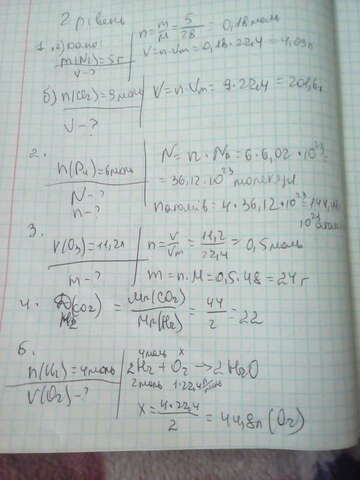 2 рівень
1. a) Дано:
m(N₂)=5г
V-?
n=m/M=5/28=0,18моль
V=n·Vm=0,18·22,4=4,03л
б) n(CO₂)=9моль
V-?
V=n·Vm=9·22,4=201,6л
2.
n(P₄)=6моль
N-?
n-?
N=n·Na=6·6,02·10²³=
=36,12·10²³ молекул
n атомів=4·36,12·10²³=144,48·
10²³ атомів
3.
V(O₃)=11,2л
m-?
n=V/Vm=11,2/22,4=0,5моль
m=n·M=0,5·48=24г
4. D H₂(CO₂)=Mr(CO₂)/Mr(H₂)=44/2=22
6.
n(H₂)=4моль
V(O₂)-?
4моль x
2H₂+O₂→2H₂O
2моль 1·22,4л/моль
x=4·22,4/2=44,8л(O₂)